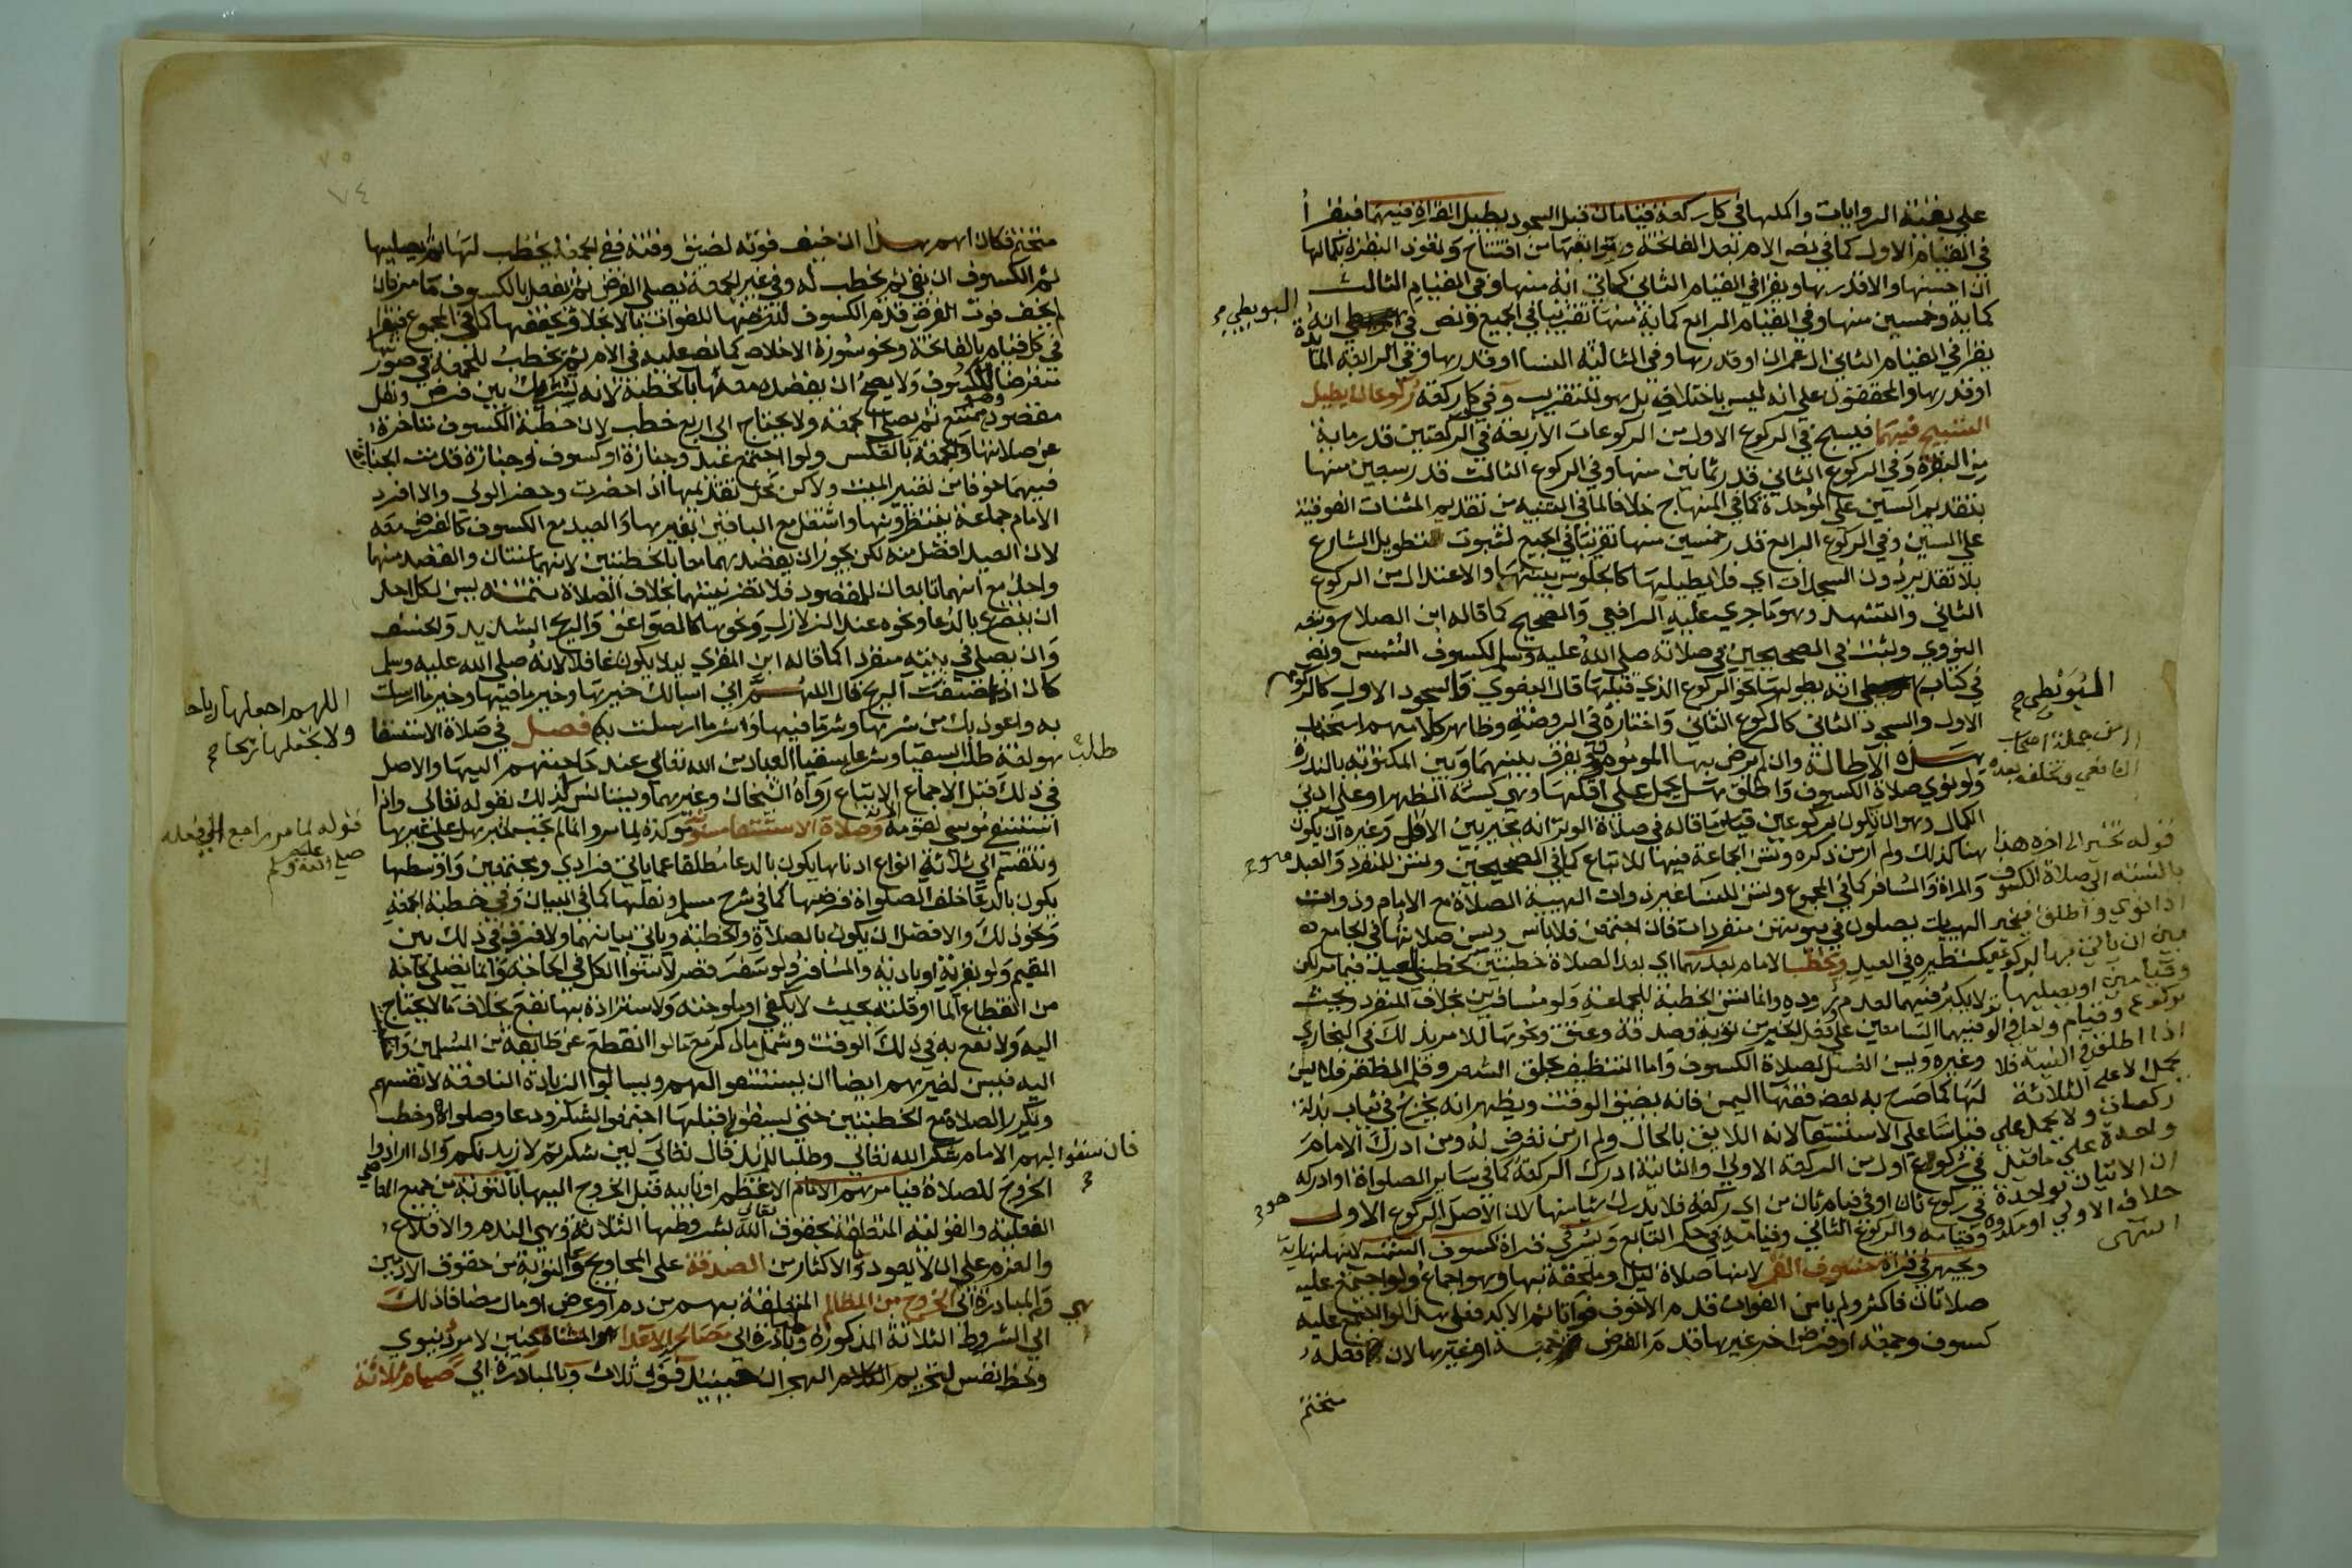 علي بقية الروايات واكملها في كل ركعة قيامان قبل السجود يطيل القراة فيهما فيقرأ
في القيام الاول كما في نص الام بعد الفاتحة وتوابعها من افتتاح وتعوذ البقرة بكمالها
ان احسنها والاقدرها ويقرا في القيام الثاني كمائتي اية منها وفي القيام الثالث
كماية وخمسين منها وفي القيام الرابع كماية منها تقريبا في الجميع ونص في البويطي انه
يقرا في القيام الثاني ال عمران او قدرها وفي الثالثة النسا او قدرها وفي الرابعة المائدة
او قدرها والمحققون علي انه ليس باختلاف بل هو للتقريب وفي كل ركعة ركوعان يطيل
التسبيح فيهما فيسبح في الركوع الاول من الركوعات الاربعة في الركعتين قدر ماية
من البقرة وفي الركوع الثاني قدر ثمانين منها وفي الركوع الثالث قدر سبعين منها
بتقديم السين علي الموحدة كما في المنهاج خلافا لما في التنبيه من تقديم المثناة الفوقية
علي السين وفي الركوع الرابع قدر خمسين منها تقريبا في الجميع لثبوت التطويل من الشارع
بلا تقدير دون السجدات اي فلا يطيلها كالجلوس بينها والاعتدال من الركوع
الثاني والتشهد وهو ما جري عليه الرافعي والصحيح كما قاله ابن الصلاح وتبعه
النووي وثبت في الصحيحين في صلاته صلي الله عليه وسلم لكسوف الشمس ونص
في كتاب البويطي انه يطولها نحو الركوع الذي قبلها قال البغوي والسجود الاول كالركوع
الاول والسجود الثاني كالركوع الثاني واختاره في الروضة وظاهر كلامهم استحباب
هذه الاطالة وان لم يرض بها المامومون ويفرق بينها وبين المكتوبة بالندرة
ولو نوي صلاة الكسوف واطلق هل يحمل علي اقلها وهي كسنة الظهر او علي ادني
الكمال وهو ان يكون بركوعين قياس ما قاله في صلاة الوتر انه يخير بين الاقل وغيره ان يكون
هنا كذلك ولم ار من ذكره وتسن الجماعة فيها للاتباع كما في الصحيحين وتسن للمنفرد والعبد
والمراة والمسافر كما في المجموع وتسن للنسا غير ذوات الهيية الصلاة مع الامام وذوات
الهييات يصلون في بيوتهن منفردات فان اجتمعن فلا باس ويسن صلاتها في الجامع
كنظيره في العيد ويخطب الامام بعدهما اي بعد الصلاة خطبتين كخطبتي العيد فيما مر لكن
لا يكبر فيهما لعدم وروده وانما تسن الخطبة للجماعة ولو مسافرين بخلاف المنفرد ويحث
فيهما السامعين علي فعل الخير من توبة وصدقة وعتق ونحوها للامر بذلك في البخاري
وغيره ويسن الغسل لصلاة الكسوف واما التنظيف بحلق الشعر وقلم الظفر فلا يسن
لها كما صرح به بعض فقها اليمن فانه يضيق الوقت ويظهر انه يخرج في ثياب بذلة
قياسا علي الاستسقا لانه اللايق بالحال ولم ار من تعرض له ومن ادرك الامام
في ركوع اول من الركعة الاولي والثانية ادرك الركعة كما في ساير الصلواة او ادركه
في ركوع ثان او في قيام ثان من اي ركعة فلا يدرك شيا منها لان الاصل الركوع الاول
وقيامه والركوع الثاني وقيامه في حكم التابع ويسر في قراة كسوف الشمس لانها نهارية
ويجهر في قراة خسوف القمر لانها صلاة ليل او ملحقة بها وهو اجماع ولو اجتمع عليه
صلاتان فاكثر ولم يامن الفوات قدم الاخوف فواتا ثم الاكد فعلي هذا لو اجتمع عليه
كسوف وجمعة او فرض اخر غيرها قدم الفرض جمعة او غيرها لان فعله
متحتم
البويطي
البويطي
من جملة اصحاب
الشافعي وتخلفه بعده
قوله تخير الي اخره هذا
بالنسبة الي صلاة الكسوف
اذا نوي واطلق فيخير
بين ان ياتي بها بركوعين
وقيامين او يصليها
بركوع وقيام واحد
اذا اطلق في النية فلا
يحمل لا علي الثلاثة
ركعات ولا يحمل علي
واحدة علي ما قيل
ان الاتيان بواحدة
خلاف الاولي او مكروه
انتهي
٧٥
٧٤
متحتم فكان اهم هذا ان خيف فوته لضيق وقته ففي الجمعة يخطب لها ثم يصليها
ثم الكسوف ان بقي ثم يخطب له وفي غير الجمعة يصلي الفرض ثم يفعل بالكسوف ما مر فان
لم يخف فوت الفرض قدم الكسوف لتعرضها للفوات بالانجلا ويخففها كما في المجموع فيقرا
في كل قيام بالفاتحة ونحو سورة الاخلاص كما نص عليه في الام ثم يخطب للجمعة في صورتها
متعرضا للكسوف ولا يصح ان يقصده معها بالخطبة لانه تشريك بين فرض ونفل
مقصود وهو ممتنع ثم يصلي الجمعة ولا يحتاج الي اربع خطب لان خطبة الكسوف متاخرة
عن صلاتها والجمعة بالعكس ولو اجتمع عيد وجنازة او كسوف وجنازة قدمت الجنازة
فيهما خوفا من تغير الميت ولاكن محل تقديمها اذا حضرت وحضر الولي والا افرد
الامام جماعة ينتظرونها واشتغل مع الباقين بغيرها والعيد مع الكسوف كالفرض معه
لان العيد افضل منه لكن يجوز ان يقصدهما معا بالخطبتين لانهما سنتان والقصد منهما
واحد مع انهما تابعان للمقصود فلا تضر نيتهما بخلاف الصلاة تتمة يسن لكل احد
ان يتضرع بالدعا ونحوه عند الزلازل ونحوها كالصواعق والريح الشديد والخسف
وان يصلي في بيته منفردا كما قاله ابن المقري ليلا يكون غافلا لانه صلي الله عليه وسلم
كان اذا عصفت الريح قال اللهم اني اسالك خيرها وخير ما فيها وخير ما ارسلت
به واعوذ بك من شرها وشر ما فيها وشر ما ارسلت به فصل في صلاة الاستسقا
هو لغة طلب السقيا وشرعا طلب سقيا العباد من الله تعالي عند حاجتهم اليها والاصل
في ذلك قبل الاجماع الاتباع رواه الشيخان وغيرهما ويستانس لذلك بقوله تعالي واذا
استسقي موسي لقومه وصلاة الاستسقا مسنونة موكدة لما مر وانما لم تجب لخبر هل علي غيرها
وتنقسم الي ثلاثة انواع ادناها يكون بالدعا مطلقا عما ياتي فرادي ومجتمعين واوسطها
يكون بالدعا خلف الصلواة فرضها كما في شرح مسلم ونفلها كما في البيان وفي خطبة الجمعة
ونحو ذلك والافضل ان يكون بالصلاة والخطبة وياتي بيانهما ولا فرق في ذلك بين
المقيم ولو بقرية او بادية والمسافر ولو سفر قصر لاستوا الكل في الحاجة وانما يصلي لحاجة
من انقطاع الما او قلته بحيث لا يكفي او ملوحته ولاستزادة بها نفع بخلاف ما لا يحتاج
اليه ولا نفع به في ذلك الوقت وشمل ما ذكر مع ما لو انقطع عن طايفة من المسلمين واحتاجوا
اليه فيسن لغيرهم ايضا ان يستسقوا لهم ويسالوا الزيادة النافعة لانفسهم
وتكرر الصلاة مع الخطبتين حتي يسقوا قبلها اجتمعوا لشكر ودعا وصلوا وخطب
بهم الامام شكرا لله تعالي وطلبا للمزيد قال تعالي لين شكرتم لازيدنكم واذا ارادوا
الخروج للصلاة فيامرهم الامام الاعظم او نايبه قبل الخروج اليها بالتوبة من جميع المعاصي
الفعلية والقولية المتعلقة بحقوق الله تعالي بشروطها الثلاثة وهي الندم والاقلاع
والعزم علي ان لا يعود والاكثار من الصدقة علي المحاويج والتوبة من حقوق الادميين
والمبادرة الي الخروج من المظالم المتعلقة بهم من دم او عرض او مال مضافا ذلك
الي الشروط الثلاثة المذكورة ومبادرة الي مصالحة الاعدا والمتشاحنين لامر دنيوي
وحظ نفس لتحريم الهجران حينيذ فوق ثلاث وبالمبادرة الي صيام ثلاثة
اللهم اجعلها رياحا
ولا تجعلها ريحا
طلب
قوله لما مر راجع الي فعله
صلي الله عليه وسلم
فان سقوا
هي